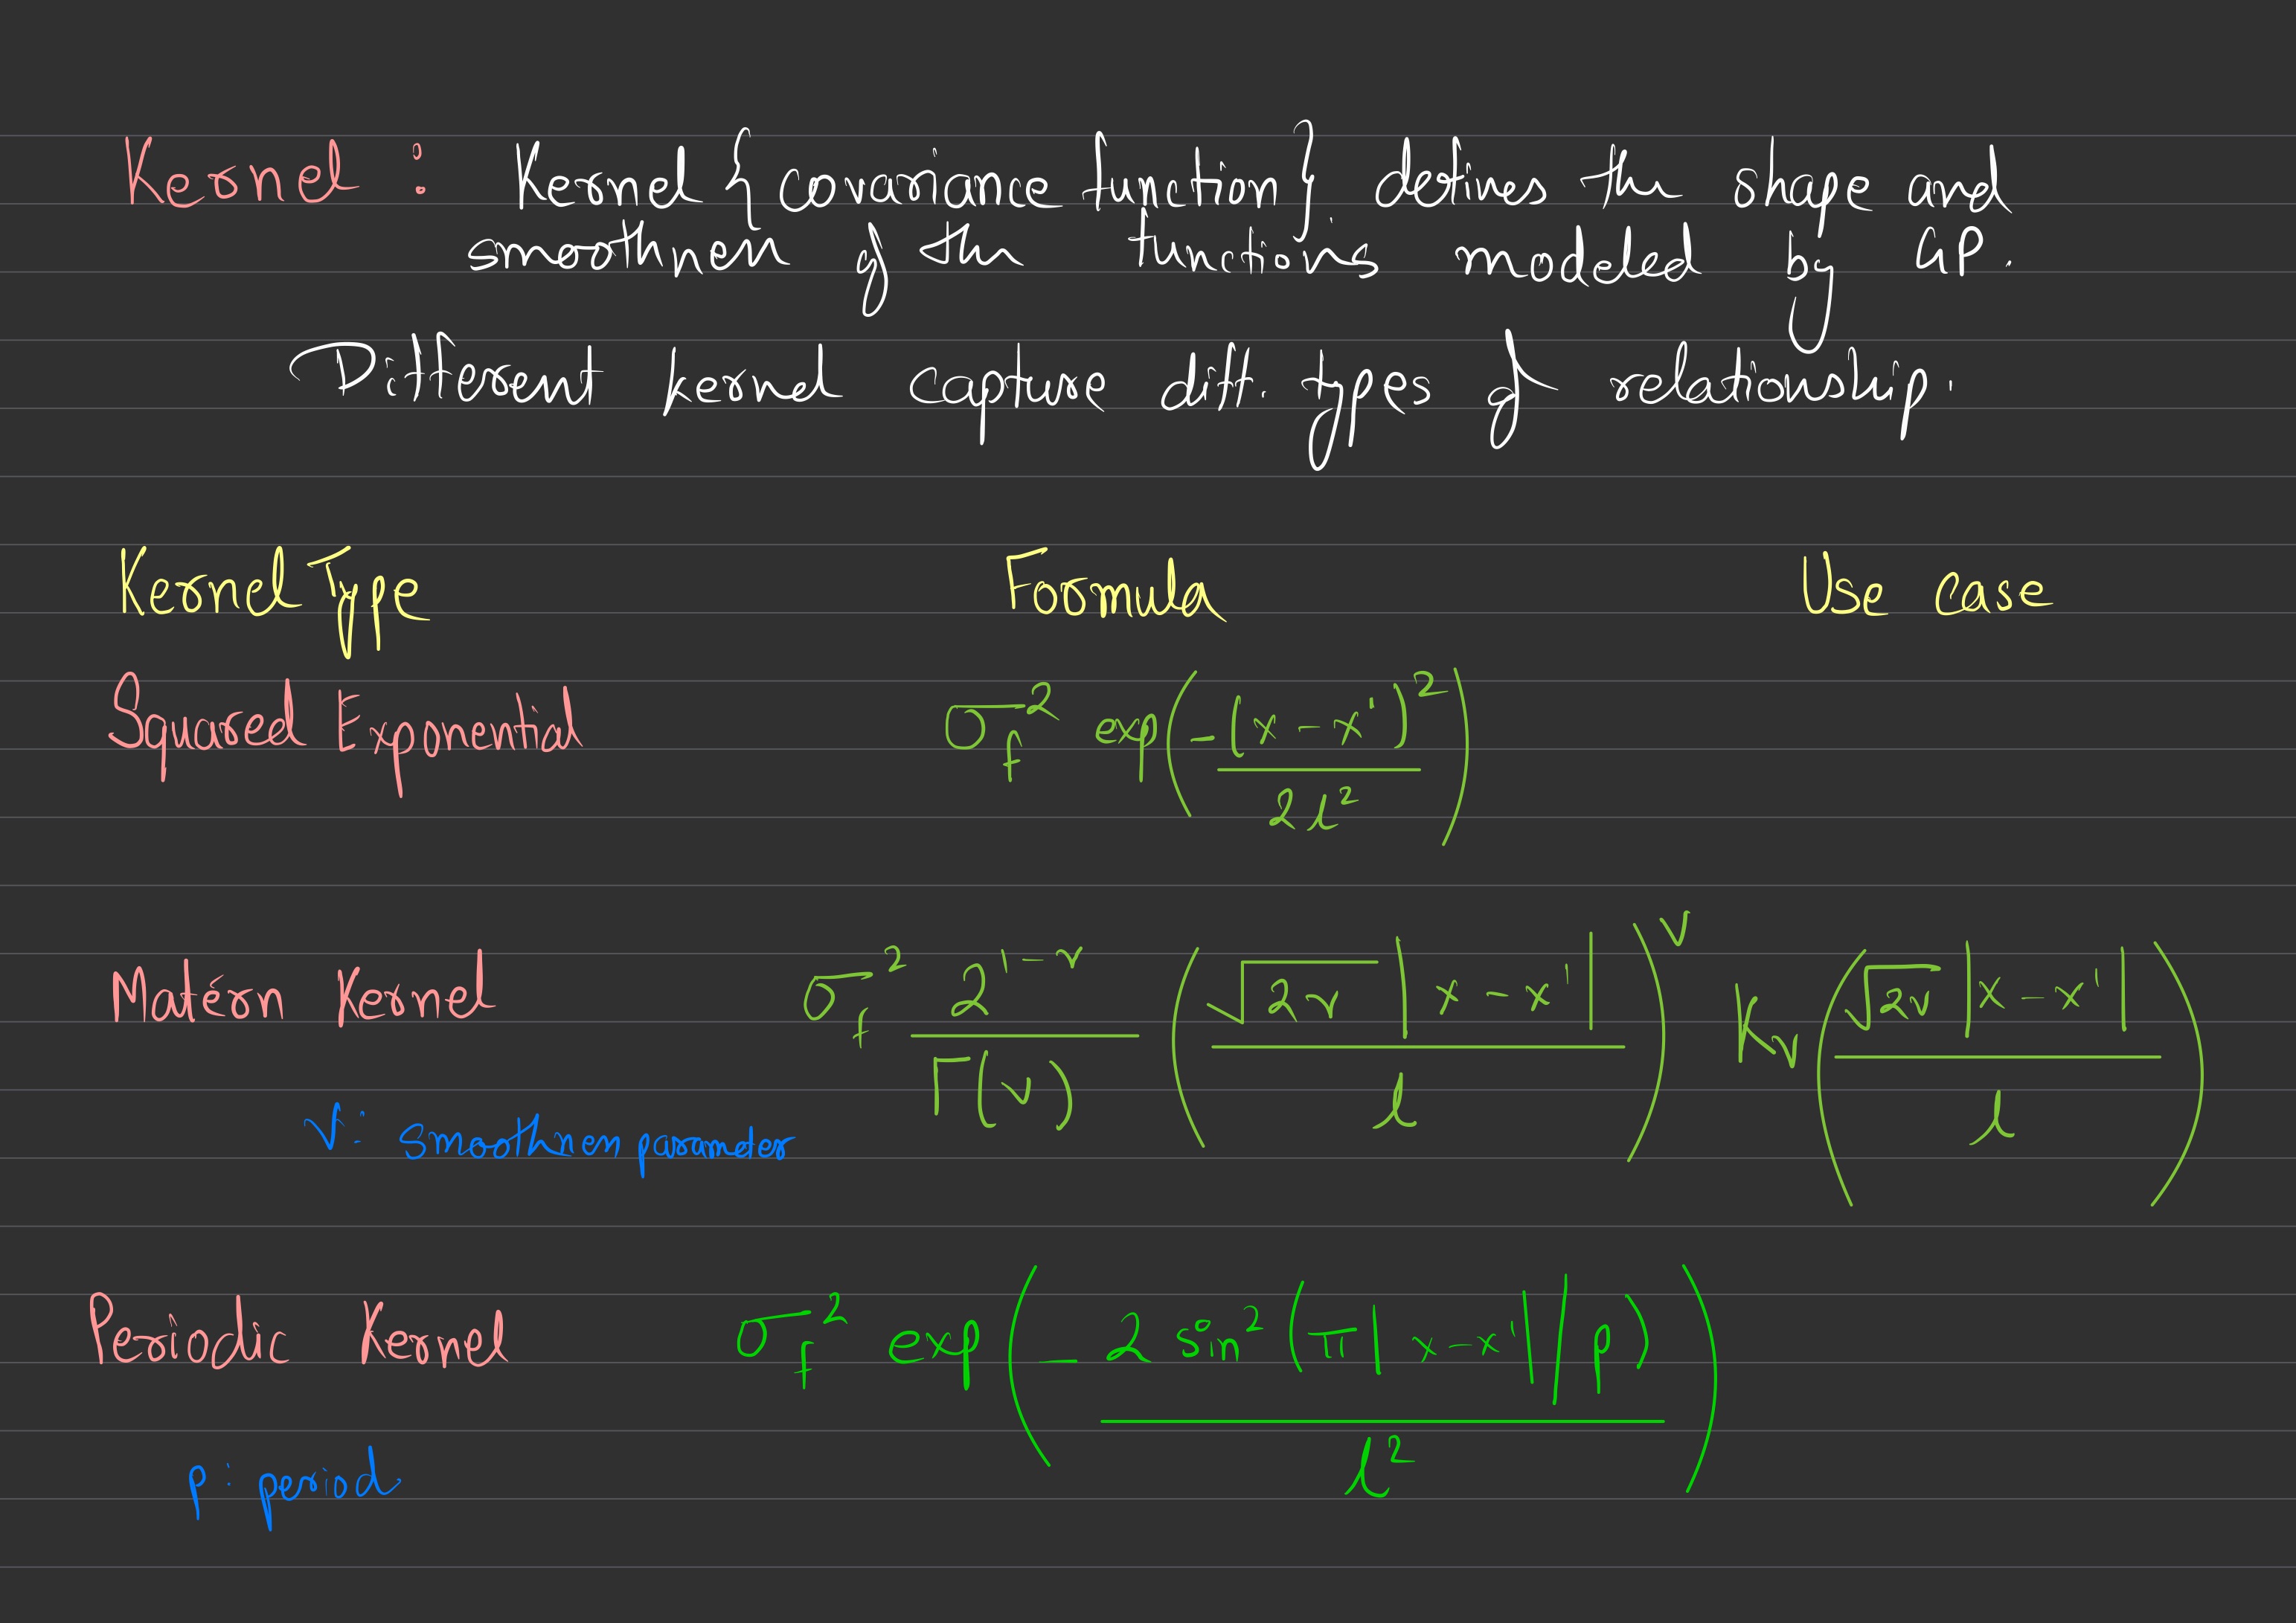 Kernel : Kernel {covariance function} defines the shape and
smoothness of the functions modeled by GP.
Different kernel capture diff. types of relationship.
Kernel Type Formula Use case
Squared Exponential σ_f² exp(-(x - x')² / 2l²)
Matérn Kernel σ_f² 2^(1-ν) / Γ(ν) (√(2ν) |x - x'| / l)^ν K_ν (√(2ν) |x - x'| / l)
ν: smoothness parameter
Periodic Kernel σ_f² exp(- 2 sin²(π|x-x'|/p) / l²)
p : period